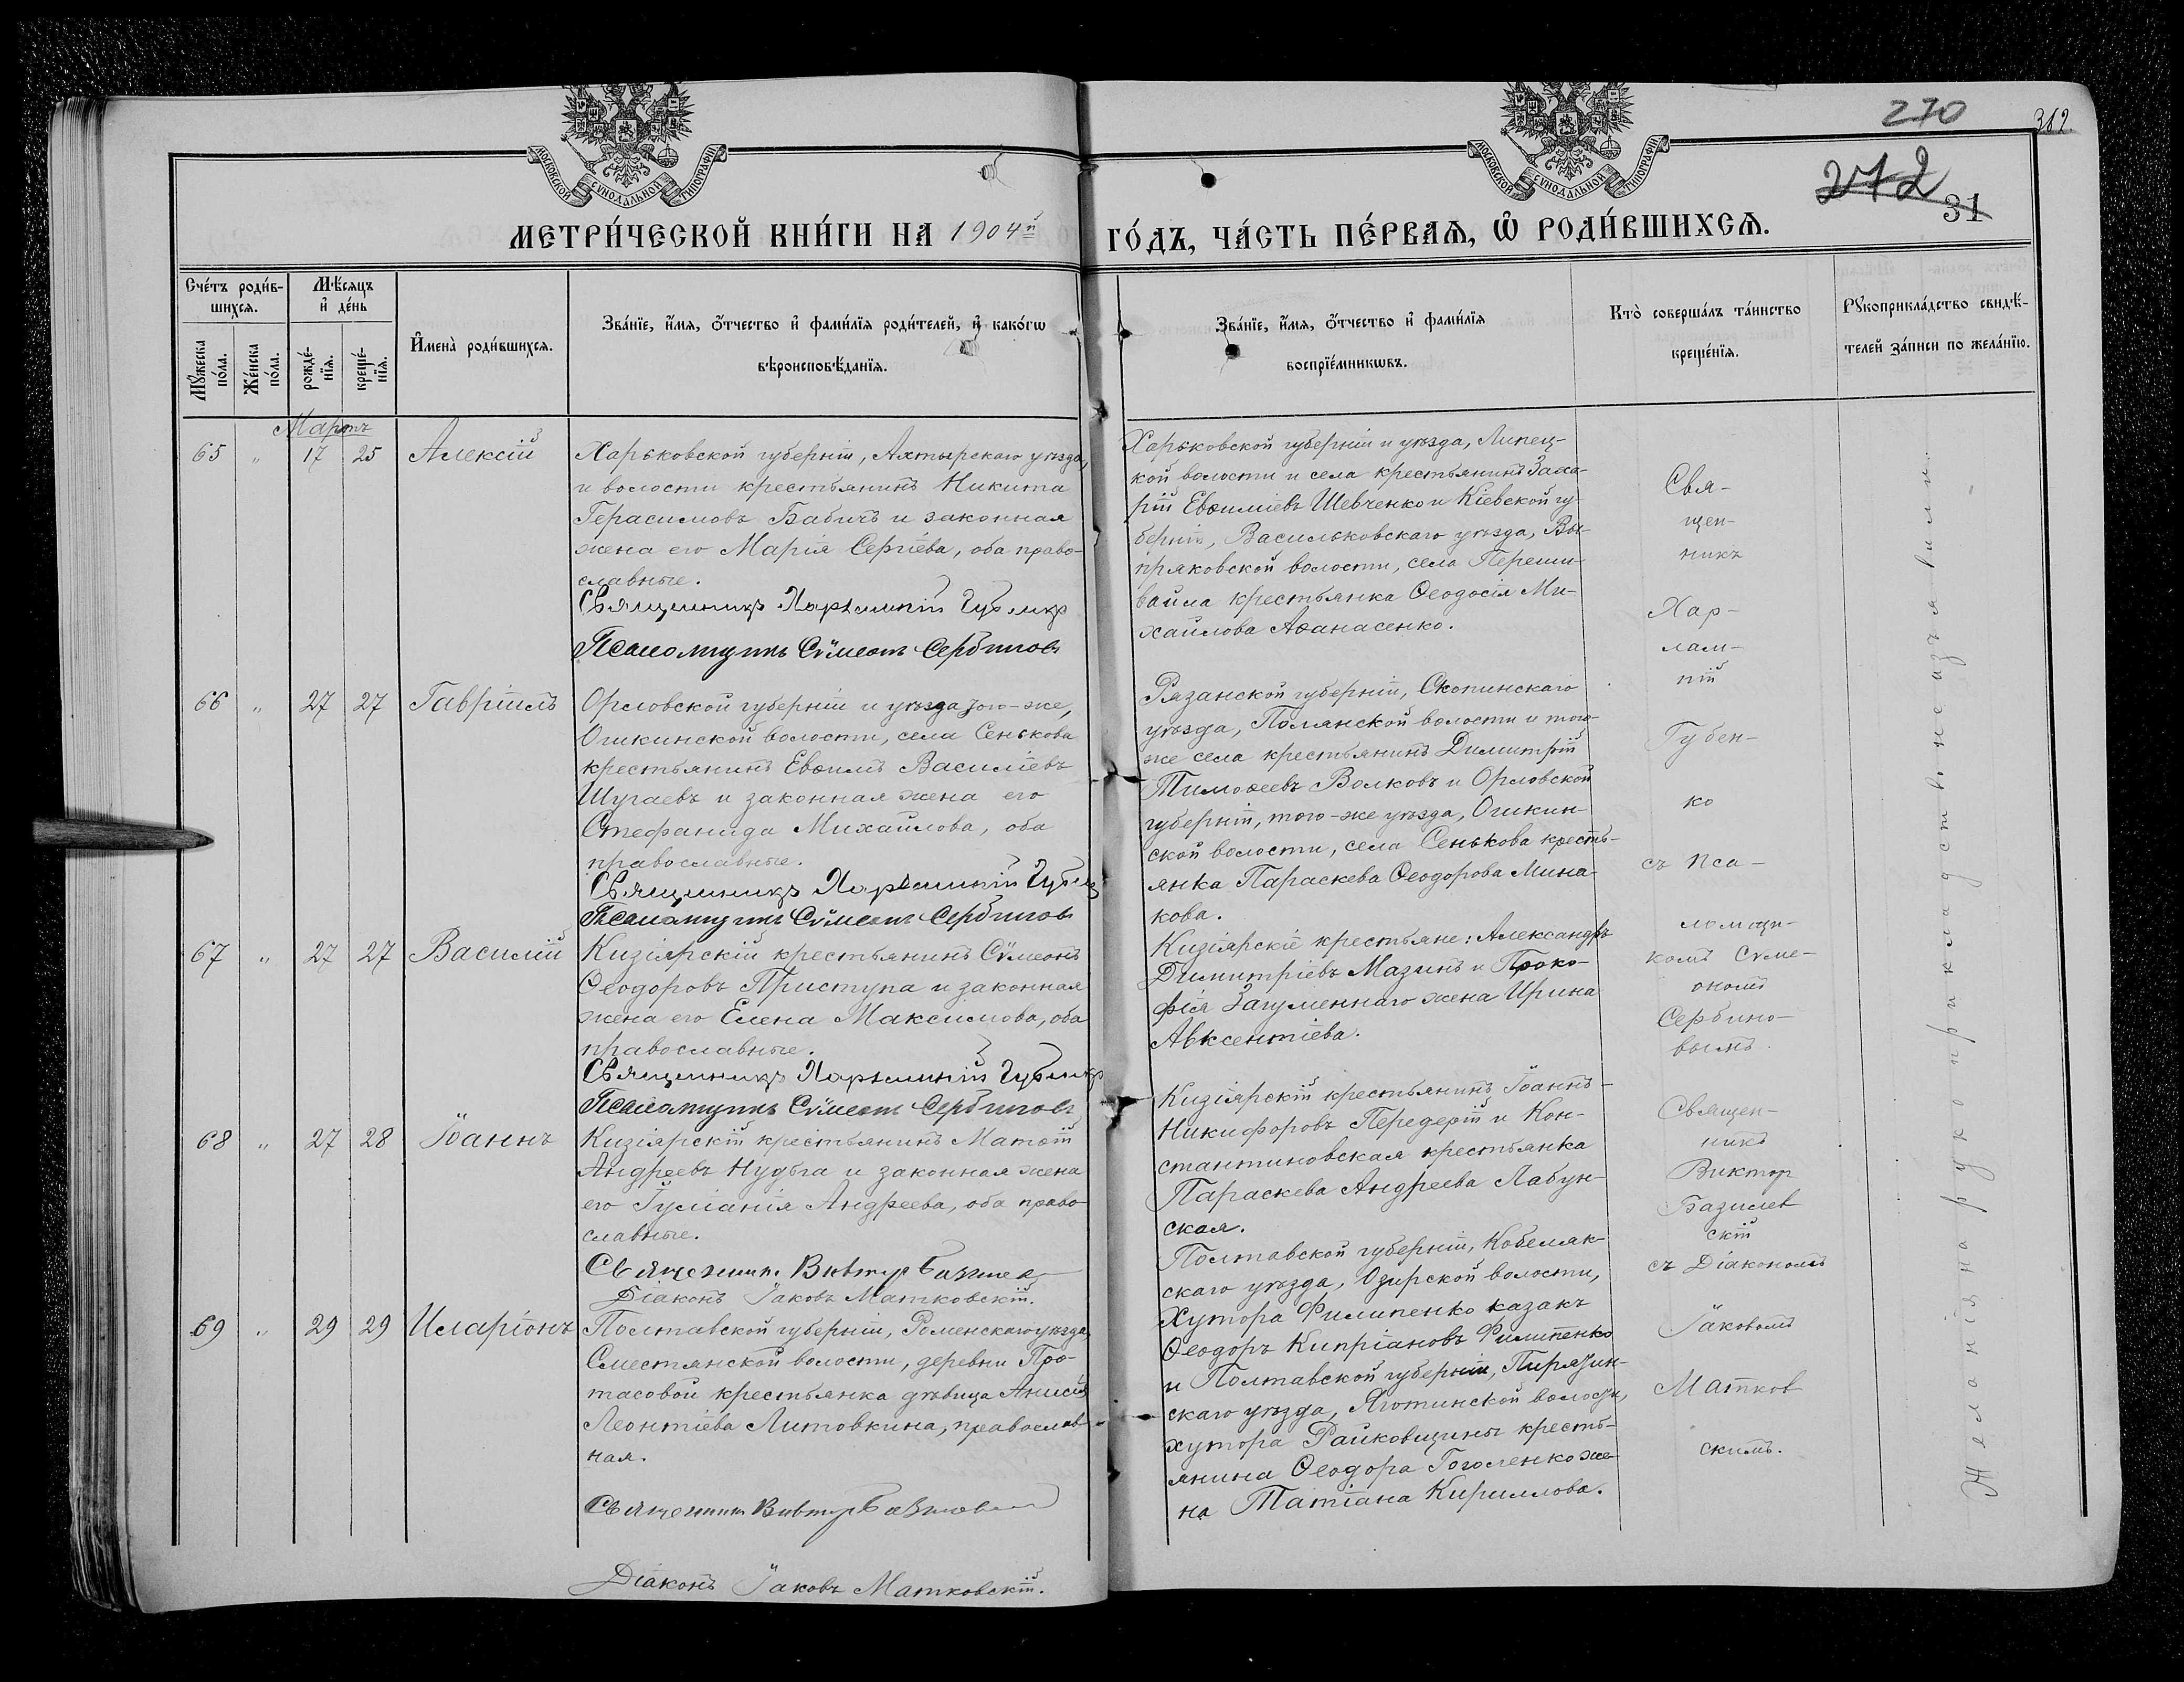 270
312
272
31
МОСКОВСКОЙ СѴНОДАЛЬНОЙ ТИПОГРАФІИ
МОСКОВСКОЙ СѴНОДАЛЬНОЙ ТИПОГРАФІИ
МЕТРИ́ЧЕСКОЙ КНИ́ГИ НА 1904й ГО́ДЪ, ЧА́СТЬ ПЕ́РВАѦ, Ѡ РОДИ́ВШИХСѦ.
Сче́тъ роди́в-
шихсѧ.
Мѹжеска по́ла.
Же́нска по́ла.
Мѣ́сѧцъ
и҆ де́нь
рожде́-
нїѧ.
креще́-
нїѧ.
И҆мена̀ роди́вшихсѧ.
Зва́нїе, и҆́мѧ, ѻ҆́тчество и҆ фами́лїѧ роди́телей, и҆ како́гѡ
вѣроисповѣ́данїѧ.
Зва́нїе, и҆́мѧ, ѻ҆́тчество и҆ фами́лїѧ
воспрїе́мникѡвъ.
Кто̀ соверша́лъ та́инство
креще́нїѧ.
Рѹкоприкла́дство свидѣ́-
телей за́писи по жела́нїю.
Мартъ
65 " 17 25 Алексій
Харьковской губерніи, Ахтырскаго уѣзда,
и волости крестьянинъ Никита
Герасимовъ Бабичъ и законная
жена его Марія Сергіева, оба право-
славные.
Священникъ Харлампій Губенко
Псаломщикъ Сѵмеонъ Сербиновъ
Харьковской губерніи и уѣзда, Липец-
кой волости и села крестьянинъ Заха-
рій Евѳиміевъ Шевченко и Кіевской гу-
берніи, Васильковскаго уѣзда,
пряковской волости, села
крестьянка Ѳеодосія Ми-
хайлова Аѳанасенко.
66 " 27 27 Гавріилъ
Орловской губерніи и уѣзда того-же,
волости, села Сенькова
крестьянинъ Евѳимъ Василіевъ
Шугаевъ и законная жена его
Стефанида Михайлова, оба
православные.
Священникъ Харлампій Губенко
Псаломщикъ Сѵмеонъ Сербиновъ
Рязанской губерніи, Скопинскаго
уѣзда, Полянской волости и того-
же села крестьянинъ Димитрій
Тимоѳеевъ Волковъ и Орловской
губерніи, того-же уѣзда,
ской волости, села Сенькова кресть-
янка Параскева Ѳеодорова Мина-
кова.
67 " 27 27 Василій
Кизіярскій крестьянинъ Сѵмеонъ
Ѳеодоровъ Приступа и законная
жена его Елена Максимова, оба
православные.
Священникъ Харлампій Губенко
Псаломщикъ Сѵмеонъ Сербиновъ
Кизіярскіе крестьяне: Александръ
Димитріевъ Мазинъ и Проко-
фія Загуменнаго жена Ирина
Авксентіева.
68 " 27 28 Іоаннъ
Кизіярскій крестьянинъ Матѳій
Андреевъ Нудьга и законная жена
его Іуліанія Андреева, оба право-
славные.
Священникъ Викторъ Базилев
Діаконъ Іаковъ Матковскій.
Кизіярскій крестьянинъ Іоаннъ
Никифоровъ Передерій и Кон-
стантиновская крестьянка
Параскева Андреева Лабун-
ская.
69 " 29 29 Иларіонъ
Полтавской губерніи, Роменскаго уѣзда,
Смелянской волости, деревни Про-
тасовой крестьянка дѣвица Анисія
Леонтіева Литовкина, православ-
ная.
Священникъ Викторъ Базилевскій
Діаконъ Іаковъ Матковскій.
Полтавской губерніи, Кобеляк-
скаго уѣзда, Озирской волости,
Хутора Филипенко казакъ
Ѳеодоръ Кипріановъ Филипенко
и Полтавской губерніи, Пирятин-
скаго уѣзда, Яготинской волости,
хутора Райковщины кресть-
янина Ѳеодора Гоголенко же-
на Татіана Кириллова.
Свя-
щен-
никъ
Хар-
лам-
пій
Губен-
ко
съ пса-
ломщи-
комъ Сѵме-
ономъ
Сербино-
вымъ.
Священ-
никъ
Викторъ
Базилев
скій
съ Діакономъ
Іаковомъ
Матков
скимъ.
Желанія на рукоприкладство не изъявили.